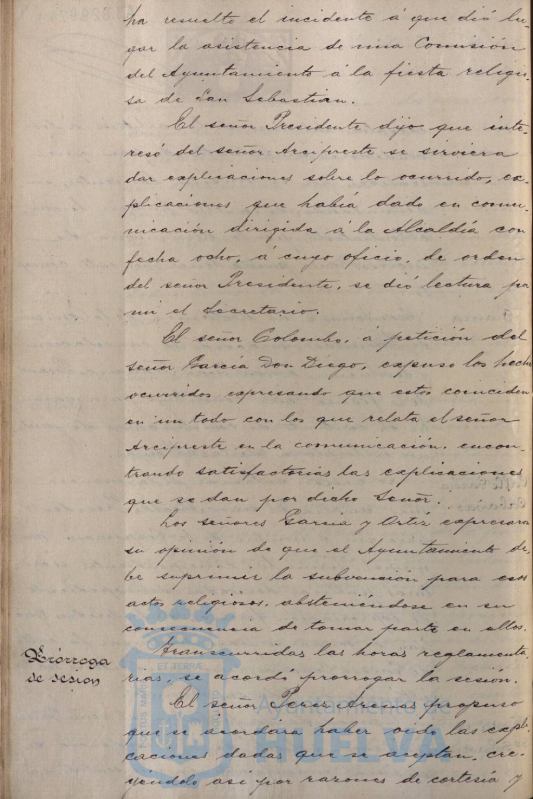 ha resuelto el incidente á que dió lu-
gar la asistencia de una Comisión
del Ayuntamiento á la fiesta religio-
sa de San Sebastian.
El señor Presidente dijo que inte-
resó del señor Arcipreste se sirviera
dar explicaciones sobre lo ocurrido, ex-
plicaciones que había dado en comu-
nicación dirigida á la Alcaldía con
fecha ocho, á cuyo oficio, de orden
del señor Presidente, se dió lectura por
mi el Secretario.
El señor Colombo, á petición del
señor García Don Diego, expuso los hechos
ocurridos expresando que estos coinciden
en un todo con los que relata el señor
Arcipreste en la comunicación, encon-
trando satisfactorias las explicaciones
que se dan por dicho Señor.
Los señores García y Ortiz expresaron
su opinión de que el Ayuntamiento de-
be suprimir la subvensión para esos
actos religiosos, absteniéndose en su
consecuencia de tomar parte en ellos.
Prórroga
de sesion
Transcurridas las horas reglamenta-
rias, se acordó prorrogar la sesión.
El señor Perez Arenas propuso
que se acordara haber oido las expli-
caciones dadas que se aceptan, cre-
yéndolo asi por razones de cortesía y
Ayuntamiento de
HUELVA